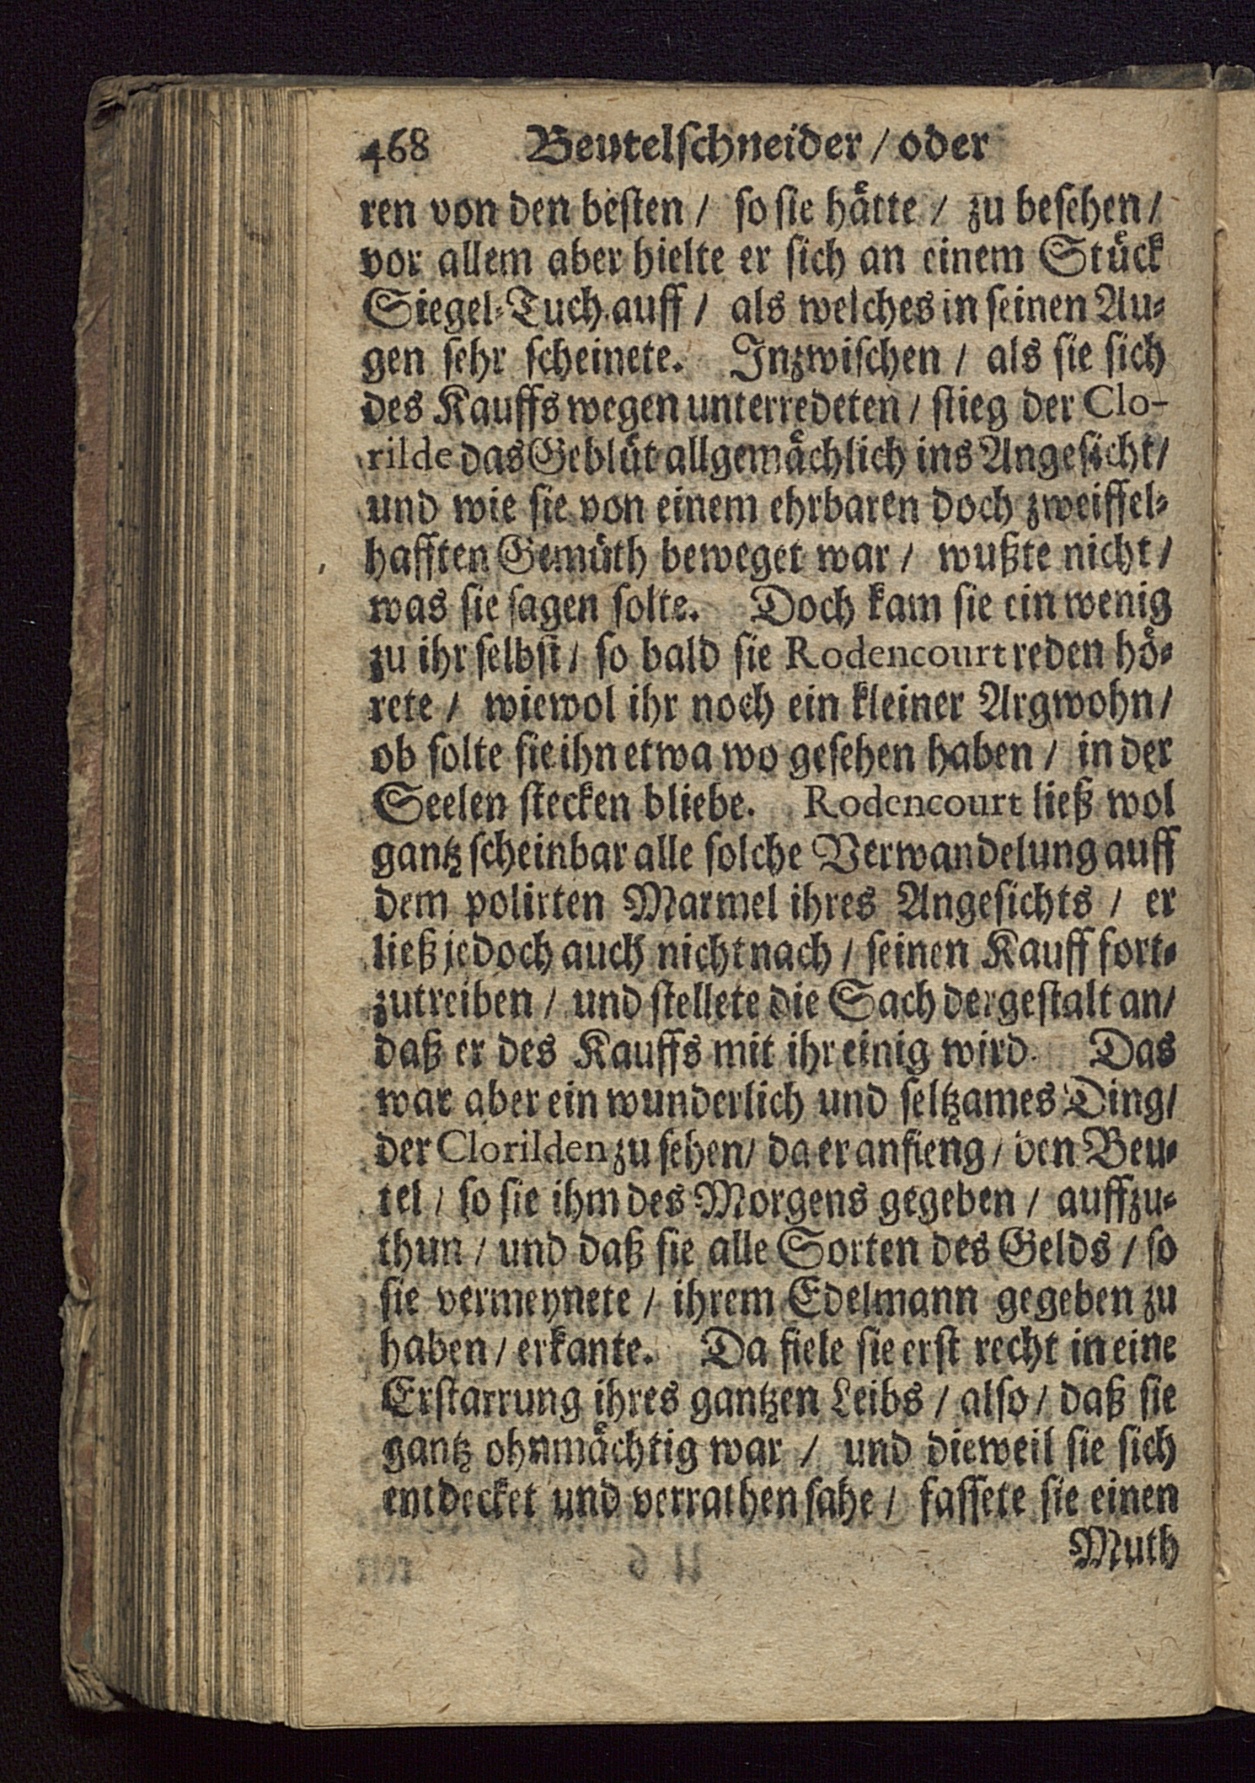 468 Beutelschneider / oder
ren von den besten / so sie hätte / zu besehen /
vor allem aber hielte er sich an einem Stück
Siegel-Tuch auff / als welches in seinen Au-
gen sehr scheinete. Inzwischen / als sie sich
des Kauffs wegen unterredeten / stieg der Clo-
rilde das Geblüt allgemächlich ins Angesicht /
und wie sie von einem ehrbaren doch zweiffel-
hafften Gemüth beweget war / wußte nicht /
was sie sagen solte. Doch kam sie ein wenig
zu ihr selbst / so bald sie Rodencourt reden hö-
rete / wiewol ihr noch ein kleiner Argwohn /
ob solte sie ihn etwa wo gesehen haben / in der
Seelen stecken bliebe. Rodencourt ließ wol
gantz scheinbar alle solche Verwandelung auff
dem polirten Marmel ihres Angesichts / er
ließ jedoch auch nicht nach / seinen Kauff fort-
zutreiben / und stellete die Sach dergestalt an /
daß er des Kauffs mit ihr einig wird. Das
war aber ein wunderlich und seltzames Ding /
der Clorilden zu sehen / da er anfieng / den Beu-
tel / so sie ihm des Morgens gegeben / auffzu-
thun / und daß sie alle Sorten des Gelds / so
sie vermeynete / ihrem Edelmann gegeben zu
haben / erkante. Da fiele sie erst recht in eine
Erstarrung ihres gantzen Leibs / also / daß sie
gantz ohnmächtig war / und dieweil sie sich
entdecket und verrathen sahe / fassete sie einen
Muth